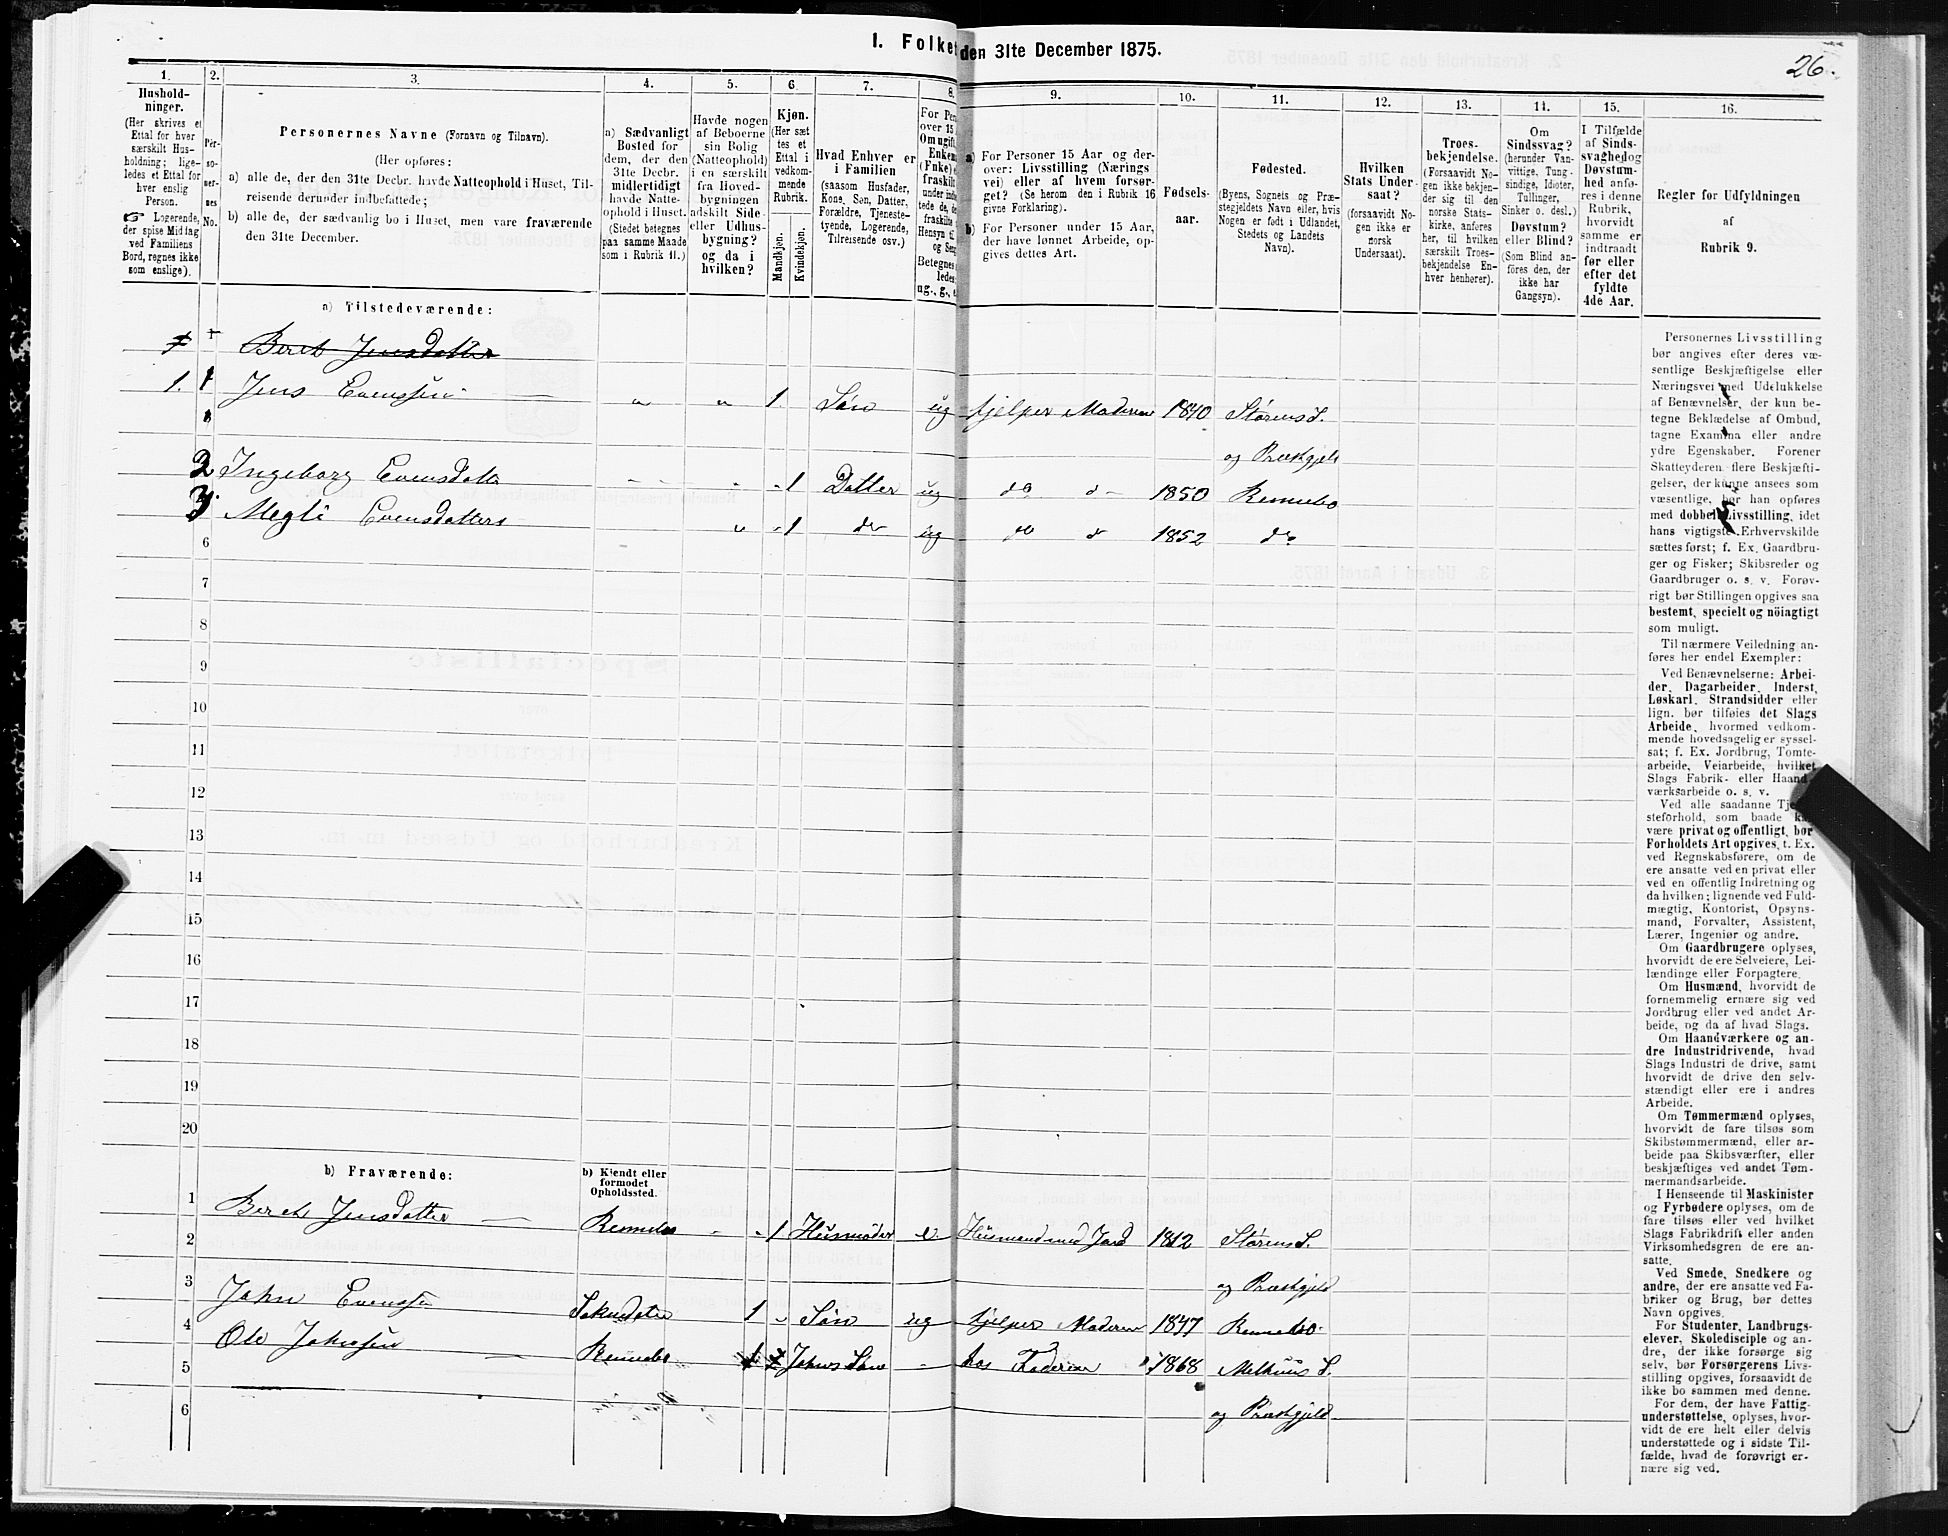 I. Folket den 31te December 1875.
26.
1.
2.
3.
4.
5.
6
7.
8.
9.
10.
11.
12.
13.
14.
15.
16.
Hushold-
ninger.
(Her skrives et
Ettal for hver
særskilt Hus-
holdning; lige-
ledes et Ettal for
hver enslig
Person.
☞ Logerende,
der spise Middag
ved Familiens
Bord, regnes ikke
som enslige).
Per-
so-
ner-
nes
No.
Personernes Navne (Fornavn og Tilnavn).
(Her opføres:
a) alle de, der den 31te Decbr. havde Natteophold i Huset, Til-
reisende derunder indbefattede;
b) alle de, der sædvanlig bo i Huset, men vare fraværende
den 31te December.
a) Sædvanligt
Bosted for
dem, der den
31te Decbr.
midlertidigt
havde Natte-
ophold i Huset.
(Stedet betegnes
paa samme Maade
som i Rubrik 11.)
Havde nogen
af Beboerne
sin Bolig
(Natteophold)
i en særskilt
fra Hoved-
bygningen
adskilt Side-
eller Udhus-
bygning?
og da i
hvilken?
Kjøn.
(Her sæt
tes et
Ettal i
vedkom-
mende
Rubrik.
Mandkjøn.
Kvindekjøn.
Hvad Enhver er
i Familien
(saasom Husfader,
Kone, Søn, Datter,
Forældre, Tjeneste-
tyende, Logerende,
Tilreisende osv.)
For Per
over 15
Om ugift,
Enkem
(Enke) e
fraskilt
under indb
tede de, d
fraskilte
Hensyn ti
og Sen
Betegnes
ledes
ug., g.,
a) For Personer 15 Aar og der-
over: Livsstilling (Nærings
vei) eller af hvem forsør-
get? (Se herom den i Rubrik 16
givne Forklaring).
b) For Personer under 15 Aar,
der have lønnet Arbeide, op-
gives dettes Art.
Fødsels-
aar.
Fødested.
(Byens, Sognets og Præ-
stegjeldets Navn eller, hvis
Nogen er født i Udlandet,
Stedets og Landets
Navn).
Hvilken
Stats Under-
saat?
(forsaavidt No-
gen ikke er
norsk
Undersaat).
Troes-
bekjendelse.
(Forsaavidt No-
gen ikke bekjen-
der sig til den
norske Stats-
kirke, anføres
her, til hvilken
særskilt Troes-
bekjendelse En-
hver henhører).
Om
Sindssvag?
(herunder Van-
vittige, Tung-
sindige, Idioter,
Tullinger,
Sinker o. desl.)
Døvstum?
eller Blind?
(Som Blind an-
føres den, der
ikke har
Gangsyn).
I Tilfælde
af Sinds-
svaghed og
Døvstum-
hed anfø-
res i denne
Rubrik,
hvorvidt
samme er
indtraadt
før eller
efter det
fyldte
4de Aar.
Regler for Udfyldningen
af
Rubrik 9.
a) Tilstedeværende:
1 1 Beret Jensdatter
1. 1 Jens Evenssen — " " 1. Søn ug hjelper Moderen 1840 Størens S.
og Præstgjeld
2 Ingeborg Evensdatter - - - 1 Datter ug do d- 1850 Rennebo
3 Megli Evensdatters " - 1 do ug do d 1852 do
6
7
8
9
10
11
12
13
14
15
16
17
18
19
20
b) Fraværende:
b) Kjendt eller
formodet
Opholdssted.
1 Beret Jensdatter — Rennebo - - 1 Husmoder e. Husmand med Jord 1812 Størens S.
2
og Præstgjeld
3 John Evenssen 1 - Søn ug hjelper Moderen 1847 Rennebo
4 Ole Johnsen — Rennebo 1 Johns Søn - hos Faderen 1868 Melhuus S.
5
og Præstgjeld
6
Personernes Livsstilling
bør angives efter deres væ-
sentlige Beskjæftigelse eller
Næringsvei med Udelukkelse
af Benævnelser, der kun be-
tegne Beklædelse af Ombud,
tagne Examina eller andre
ydre Egenskaber. Forener
Skatteyderen flere Beskjæfti-
gelser, der kunne ansees som
væsentlige, bør han opføres
med dobbelt Livsstilling, idet
hans vigtigste Erhvervskilde
sættes først; f. Ex. Gaardbru-
ger og Fisker; Skibsreder og
Gaardbruger o. s. v. Forøv-
rigt bør Stillingen opgives saa
bestemt, specielt og nöiagtigt
som muligt.
Til nærmere Veiledning an-
føres her endel Exempler:
Ved Benævnelserne: Arbei-
der, Dagarbeider, Inderst,
Løskarl, Strandsidder eller
lign. bør tilføies det Slags
Arbeide, hvormed vedkom-
mende hovedsagelig er syssel-
sat; f. Ex. Jordbrug, Tomte-
arbeide, Veiarbeide, hvilket
Slags Fabrik- eller Haand-
værksarbeide o. s. v.
Ved alle saadanne Tje
steforhold, som baade k
være privat og offentligt, bør
Forholdets Art opgives, t. Ex.
ved Regnskabsførere, om de
ere ansatte ved en privat eller
ved en offentlig Indretning og
da hvilken; lignende ved Fuld-
mægtig, Kontorist, Opsyns-
mand, Forvalter, Assistent,
Lærer, Ingeniør og andre.
Om Gaardbrugere oplyses,
hvorvidt de ere Selveiere, Lei-
lændinge eller Forpagtere.
Om Husmænd, hvorvidt de
fornemmelig ernære sig ved
Jordbrug eller ved andet Ar-
beide, og da af hvad Slags.
Om Haandværkere og an-
dre Industridrivende, hvad
Slags Industri de drive, samt
hvorvidt de drive den selv-
stændigt eller ere i andres
Arbeide.
Om Tømmermænd oplyses,
hvorvidt de fare tilsøs som
Skibstømmermænd, eller ar-
beide paa Skibsværfter, eller
beskjæftiges ved andet Tøm-
mermandsarbeide.
I Henseende til Maskinister
og Fyrbødere oplyses, om de
fare tilsøs eller ved hvilket
Slags Fabrikdrift eller anden
Virksomhedsgren de ere an-
satte.
Ved Smede, Snedkere og
andre, der ere ansatte ved Fa-
briker og Brug, bør dettes
Navn opgives.
For Studenter, Landbrugs-
elever, Skoledisciple og an-
dre, der ikke forsørge sig
selv, bør Forsørgerens Livs-
stilling opgives, forsaavidt de
ikke bo sammen med denne.
For dem, der have Fattig-
understøttelse, oplyses, hvor-
vidt de ere helt eller delvis
understøttede og i sidste Til-
fælde, hvad de forøvrigt er-
nære sig ved.